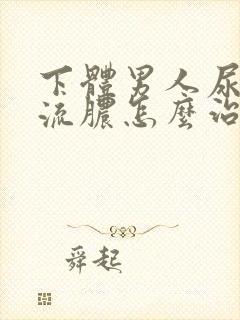 下體男人尿
流膿怎麼治
舜起